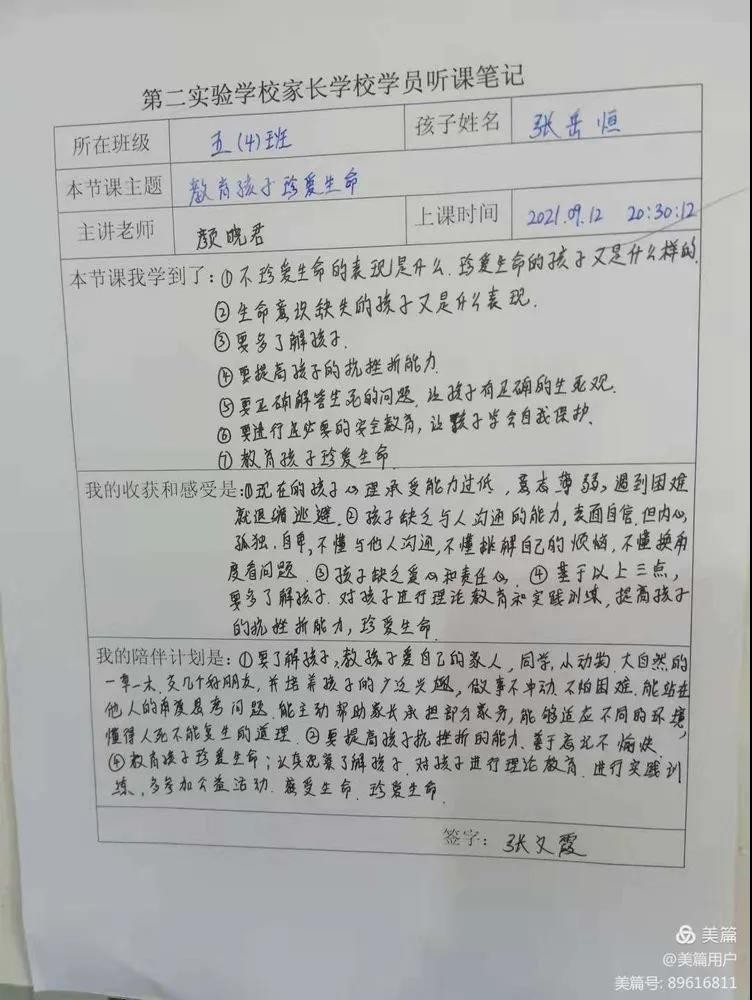 第二实验学校家长学校学员听课笔记
所在班级 五(4)班 孩子姓名 张岳恒
本节课主题 教育孩子珍爱生命
主讲老师 颜晓君 上课时间 2021.09.12 20:30:12
本节课我学到了:①不珍爱生命的表现是什么.珍爱生命的孩子又是什么样的.
②生命意识缺失的孩子又是什么表现.
③要多了解孩子.
④要提高孩子的抗挫折能力.
⑤要正确解答生死的问题.让孩子有正确的生死观.
⑥要进行必要的安全教育,让孩子学会自我保护.
⑦教育孩子珍爱生命.
我的收获和感受是:①现在的孩子心理承受能力过低,意志薄弱。遇到困难
就退缩逃避.②孩子缺乏与人沟通的能力,表面自信.但内心
孤独.自卑,不懂与他人沟通,不懂排解自己的烦恼,不懂换角
度看问题.③孩子缺乏爱心和责任心.④基于以上三点,
要多了解孩子.对孩子进行理论教育和实践训练,提高孩子
的抗挫折能力,珍爱生命.
我的陪伴计划是:①要了解孩子,教孩子爱自己的家人,同学,小动物.大自然的
一草一木.交几个好朋友,并培养孩子的广泛兴趣,做事不冲动.不怕困难.能站在
他人的角度思考问题.能主动帮助家长承担部分家务,能够适应不同的环境,
懂得人死不能复生的道理.②要提高孩子抗挫折的能力.善于忘记不愉快.
④教育孩子珍爱生命;认真观察了解孩子.对孩子进行理论教育.进行实践训
练,多参加公益活动.感受生命.珍爱生命.
签字:张文霞
美篇
@美篇用户
美篇号:89616811